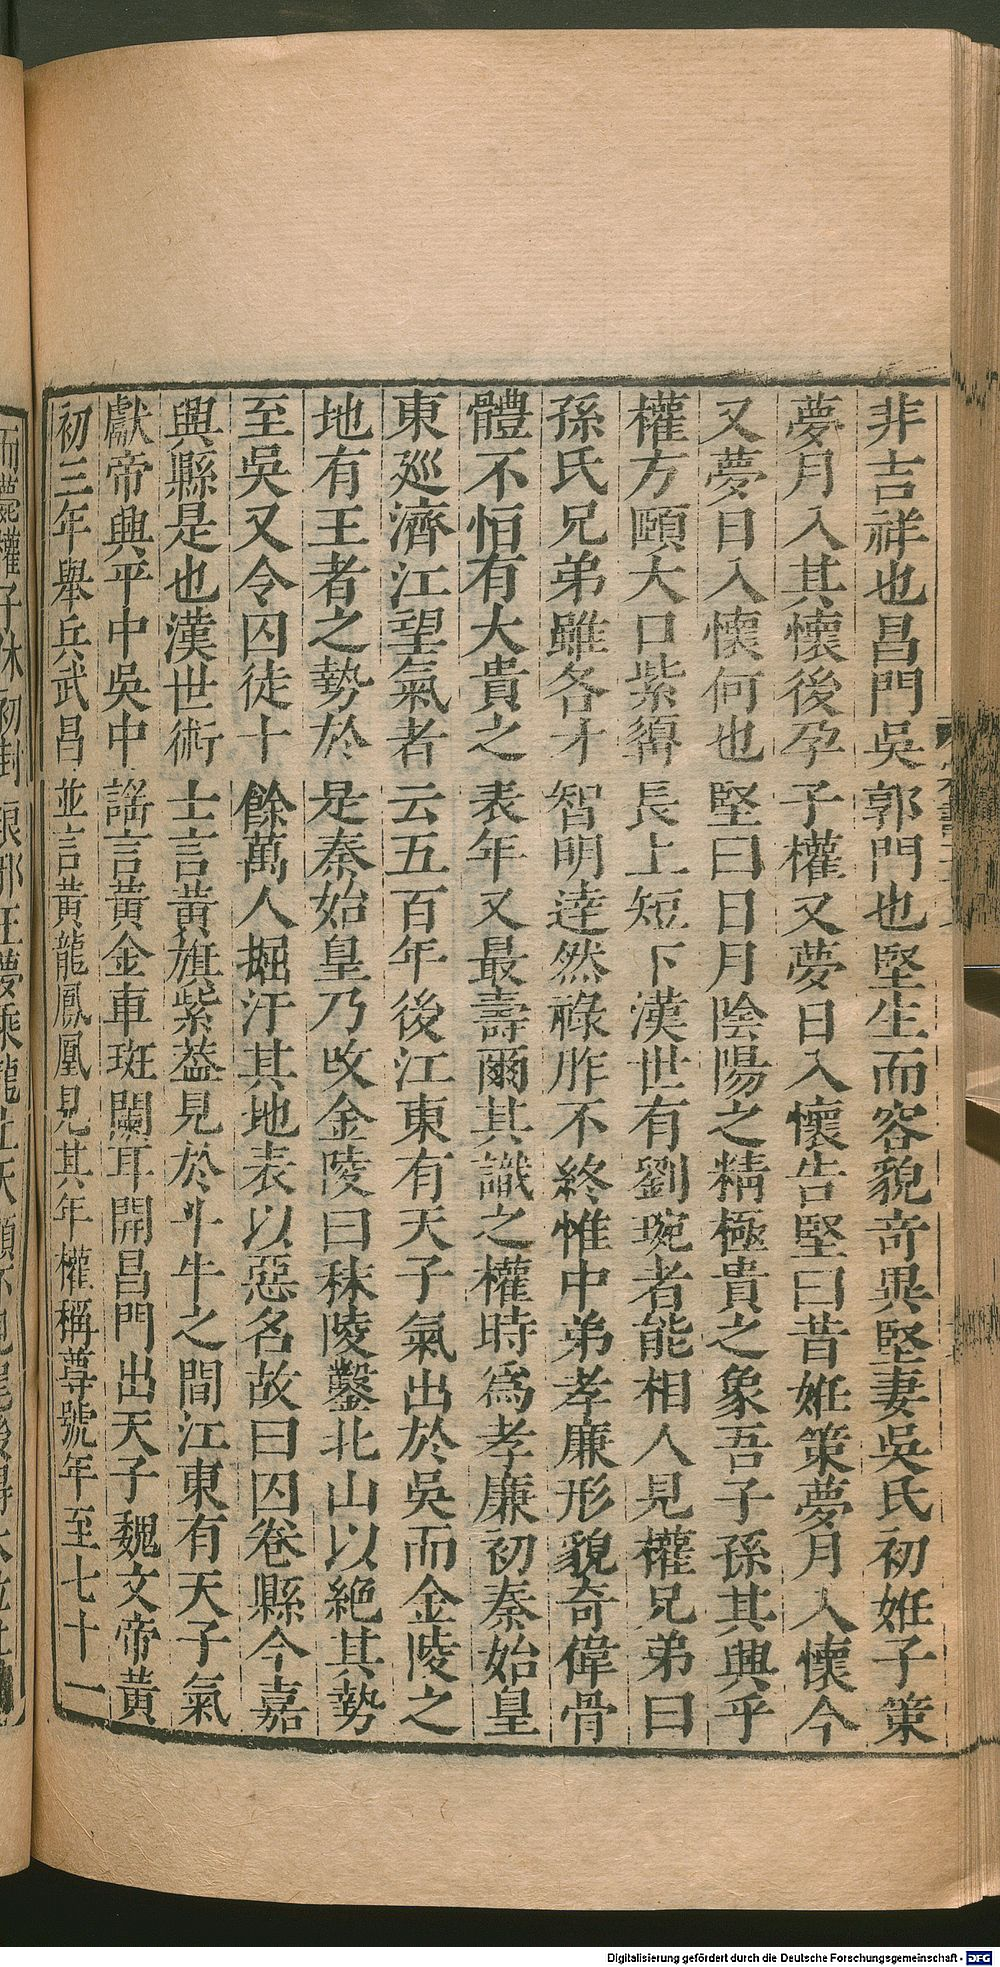 非吉祥也昌門吳郭門也堅生而容貌奇異堅妻吳氏初姙子策
夢月入其懷後孕子權又夢日入懷告堅曰昔姙策夢月入懷今
又夢日入懷何也堅曰日月陰陽之精極貴之象吾子孫其興乎
權方頤大口紫髯長上短下漢世有劉琬者能相人見權兄弟曰
孫氏兄弟雖各才智明達然祿胙不終惟中弟孝廉形貌奇偉骨
體不恒有大貴之表年又最壽爾其識之權時爲孝廉初秦始皇
東廵濟江望氣者云五百年後江東有天子氣出於吳而金陵之
地有王者之勢於是秦始皇乃改金陵曰秣陵鑿北山以絶其勢
至吳又令囚徒十餘萬人掘汙其地表以惡名故曰囚卷縣今嘉
興縣是也漢世術士言黃旗紫葢見於斗牛之間江東有天子氣
獻帝興平中吳中謡言黃金車班闌耳開昌門出天子魏文帝黃
初三年舉兵武昌並言黃龍鳳凰見其年權稱尊號年至七十一
權子休初封琅邪王夢乘龍上天顧不見尾後得大位其
Digitalisierung gefördert durch die Deutsche Forschungsgemeinschaft - DFG